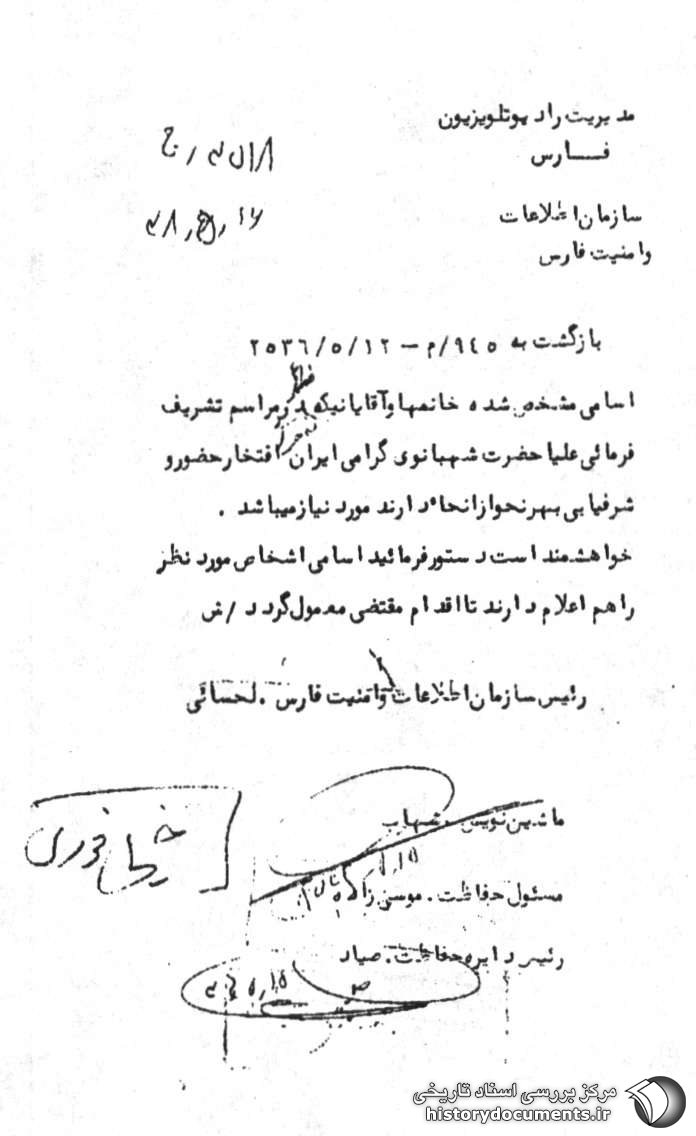 مدیریت رادیوتلویزیون
فارس
سازمان اطلاعات
وامنیت فارس
بازگشت به ٩٤٥/م – ٢٥٣٦/٥/١٢
اسامی مشخص شده خانمها وآقایانیکه در مراسم تشریف
فرمائی علیاحضرت شهبانوی گرامی ایران افتخار حضور و
شرفیابی بهر نحو از انحاء دارند مورد نیاز میباشد .
خواهشمند است دستور فرمائید اسامی اشخاص مورد نظر
را هم اعلام دارند تا اقدام مقتضی معمول گردد /ش
رئیس سازمان اطلاعات وامنیت فارس . لحسائی
خیلی فوری
ماشین نویس . شهاب
مسئول حفاظت .
رئیس دایره حفاظت . صیاد
مرکز بررسی اسناد تاریخی
historydocuments.ir